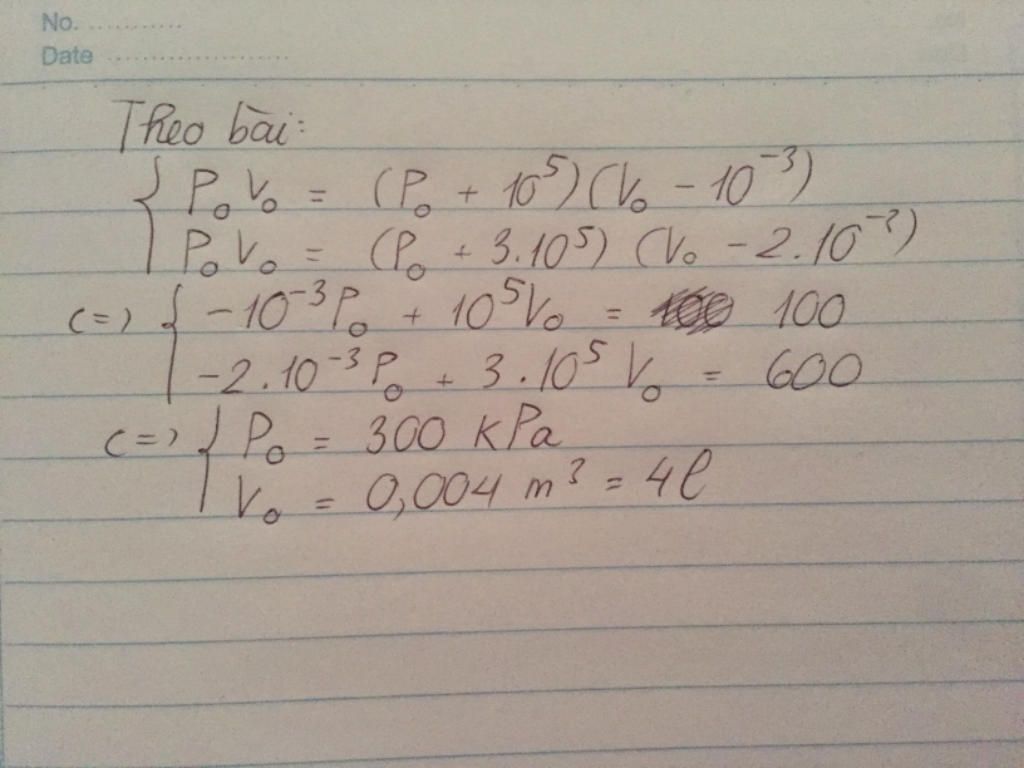 No. ............
Date ........................
Theo bài:
{ P₀V₀ = (P₀ + 10⁵)(V₀ - 10⁻³)
P₀V₀ = (P₀ + 3.10⁵) (V₀ - 2.10⁻³)
(=) { -10⁻³P₀ + 10⁵V₀ = 100
-2.10⁻³P₀ + 3.10⁵ V₀ = 600
(=) { P₀ = 300 kPa
V₀ = 0,004 m³ = 4l